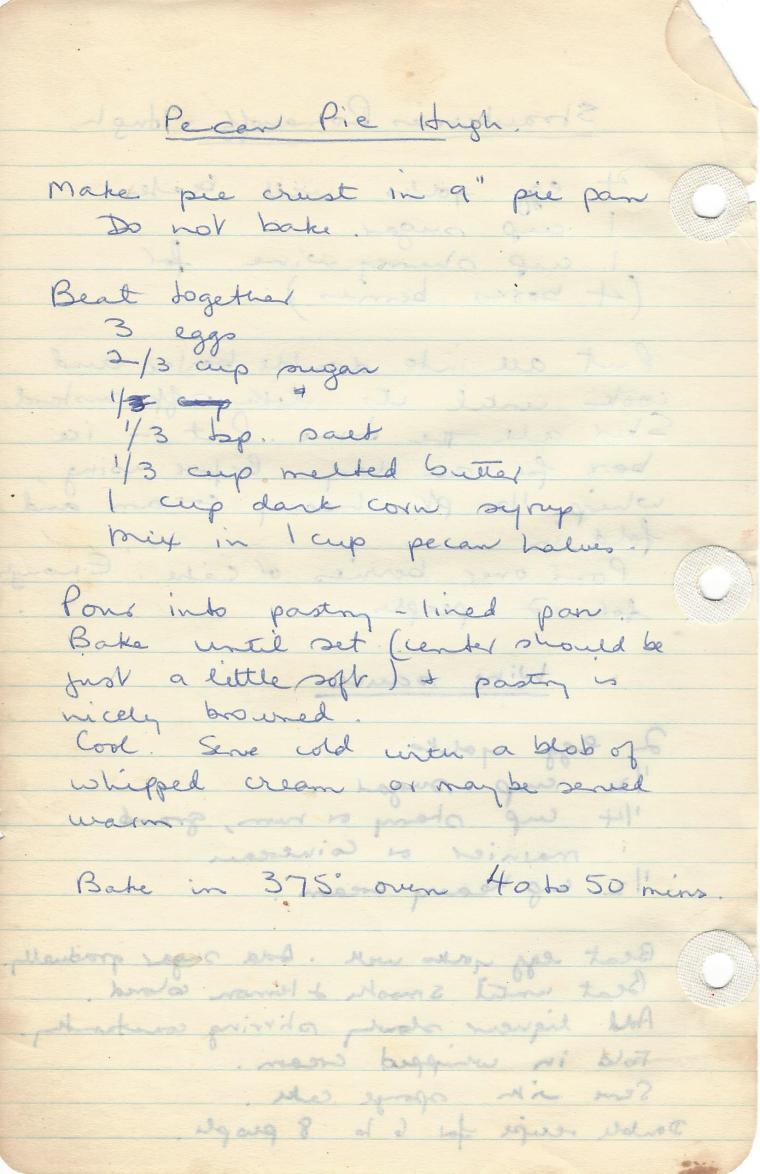 Pecan Pie Hugh.
Make pie crust in 9" pie pan
Do not bake.
Beat together
3 eggs
2/3 cup sugar
1/3 cup "
1/3 tsp. salt
1/3 cup melted butter
1 cup dark corn syrup
Mix in 1 cup pecan halves.
Pour into pastry-lined pan.
Bake until set (center should be
just a little soft) & pastry is
nicely browned.
Cool. Serve cold with a blob of
whipped cream or maybe served
warm.
Bake in 375° oven 40 to 50 mins.